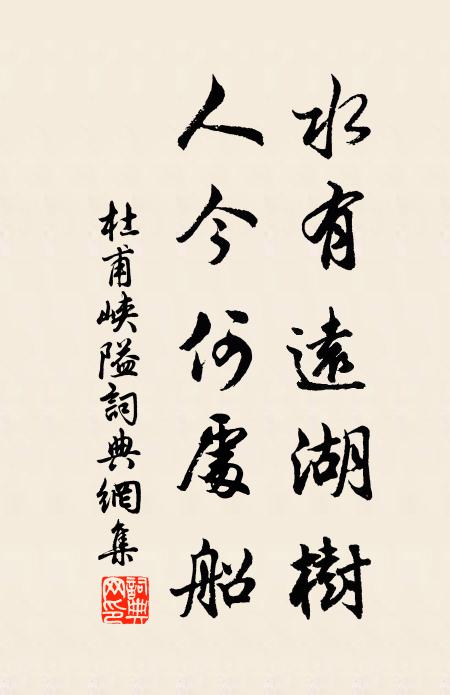 水有遠湖樹
人今何處船
杜甫峽隘詞典網集
詞典網印